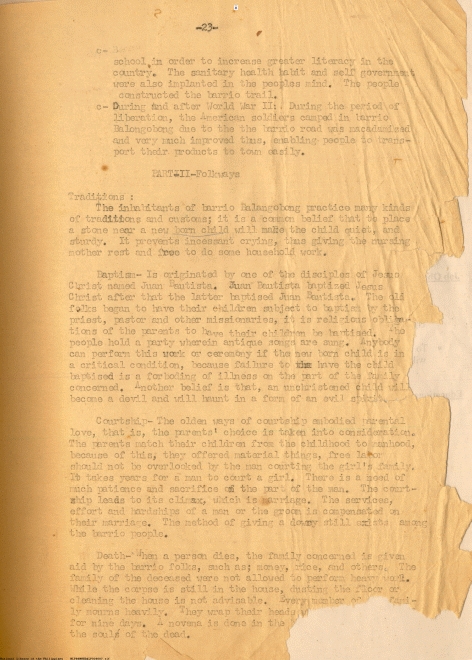 -23-
c-
school in order to increase greater literacy in the
country. The sanitary health habit and self government
were also implanted in the peoples mind. The people
constructed the barrio trail.
c- During and after World War II: During the period of
liberation, the American soldiers camped in barrio
Balangobong due to the the barrio road was macadamized
and very much improved thus, enabling people to trans-
port their products to town easily.
PART-II-Folkways
Traditions :
The inhabitants of barrio Balangobong practice many kinds
of traditions and customs; it is a common belief that to place
a stone near a new born child will make the child quiet, and
sturdy. It prevents incessant crying, thus giving the nursing
mother rest and free to do some household work.
Baptism- Is originated by one of the disciples of Jesus
Christ named Juan Bautista. Juan Bautista baptised Jesus
Christ after that the latter baptised Juan Bautista. The old
folks began to have their children subject to baptism by the
priest, pastor and other missionaries, it is religious obliga-
tions of the parents to have their children be baptised. The
people hold a party wherein antique songs are sung. Anybody
can perform this work or ceremony if the new born child is in
a critical condition, because failure to have the child
baptised is a forboding of illness on the part of the family
concerned. Another belief is that, an unchristened child will
become a devil and will haunt in a form of an evil spirit.
Courtship- The olden ways of courtship embodied parental
love, that is, the parents' choice is taken into consideration.
The parents match their children from the childhood to manhood,
because of this, they offered material things, free labor
should not be overlooked by the man courting the girl's family.
It takes years for a man to court a girl. There is a need of
much patience and sacrifice on the part of the man. The court-
ship leads to its climax, which is marriage. The services,
effort and hardships of a man or the groom is compensated on
their marriage. The method of giving a dowry still exists among
the barrio people.
Death- When a person dies, the family concerned is given
aid by the barrio folks, such as; money, rice, and others. The
family of the deceased were not allowed to perform heavy work.
While the corpse is still in the house, dusting the floor or
cleaning the house is not advisable. Every member of the fami-
ly mourns heavily. They wrap their heads
for nine days. A novena is done in the
the souls of the dead.